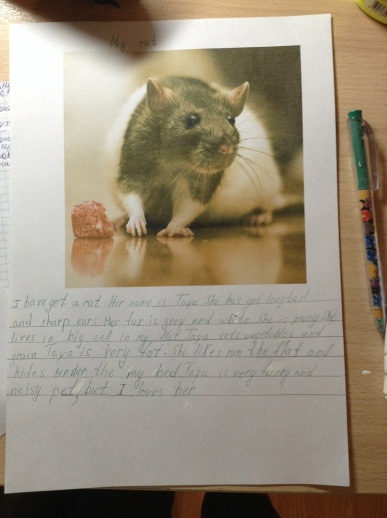 My rat
I have got a rat Her name is Tava She has got long tail
and sharp ears Her fur is grey and white She is pussy She
lives in big cell in my flat Tava eets vegetables and
grain Tava is very fat. She likes run the flat and
hides under the my bed Tava is very funny and
noisy pet, but I loves her